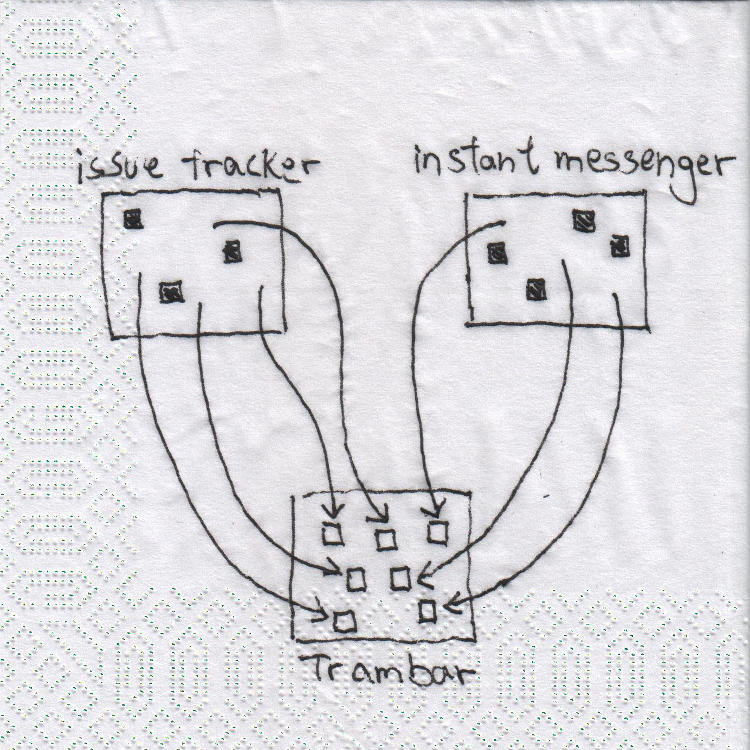 issue tracker
instant messenger
Trambar